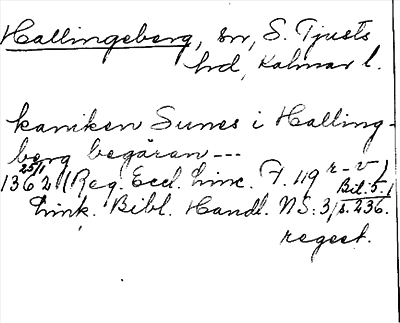 Hallingeberg, sn, S. Tjusts
hd, Kalmar l.
kaniken Sunes i Halling-
berg begäran ---
25/1 1362 (Reg. Eccl. Linc. F. 119 r-v)
Link. Bibl. Handl. NS: 3, Bil. 5. s. 236.
regest.